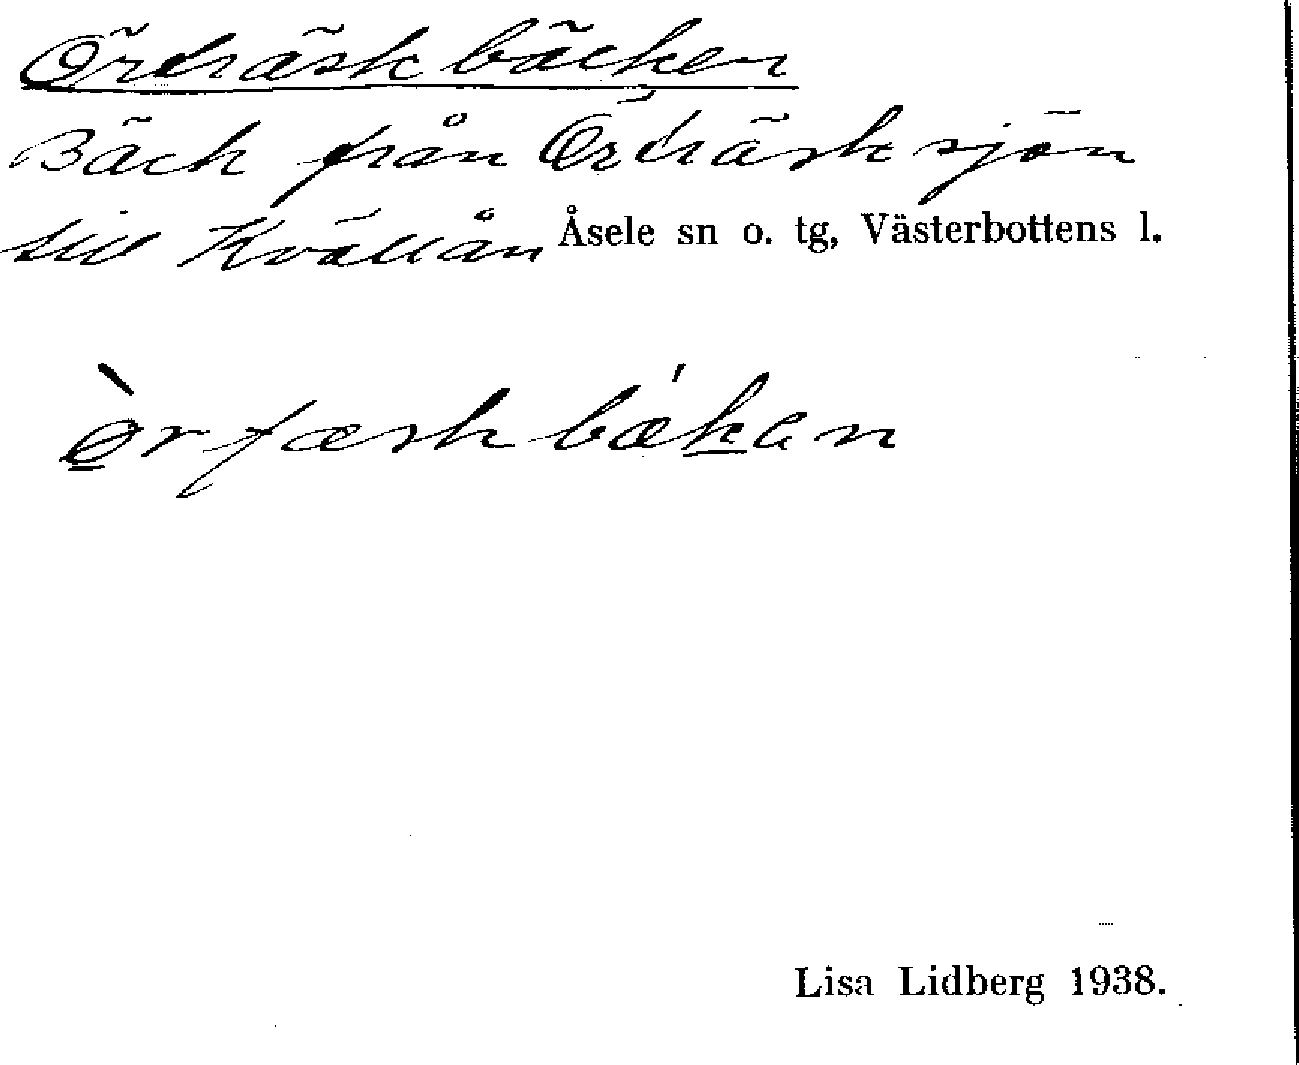 Örträskbäcken
Bäck från Örträsksjön
till Kvällån Åsele sn o. tg, Västerbottens l.
Lisa Lidberg 1938.